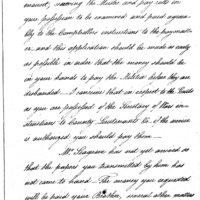 amount, receiving the Muster and pay rolls in
your possession to be examined and paid agrea-
bly to the Comptrollers instructions to the paymast-
er, and this application should be made as early
as possible in order that the money should be
in your hands to pay the Militia before they are
disbanded. I conceive that in respect to the Cavalry
as you are possessed of the Secretary of Wars in-
structions to County Lieutenants &c. if the service
is authorized you should pay them—
Mr. Seagrove has not yet arrived so
that the papers you transmitted by him has
not come to hand. The money you requested
will be paid your Brother, several other matters